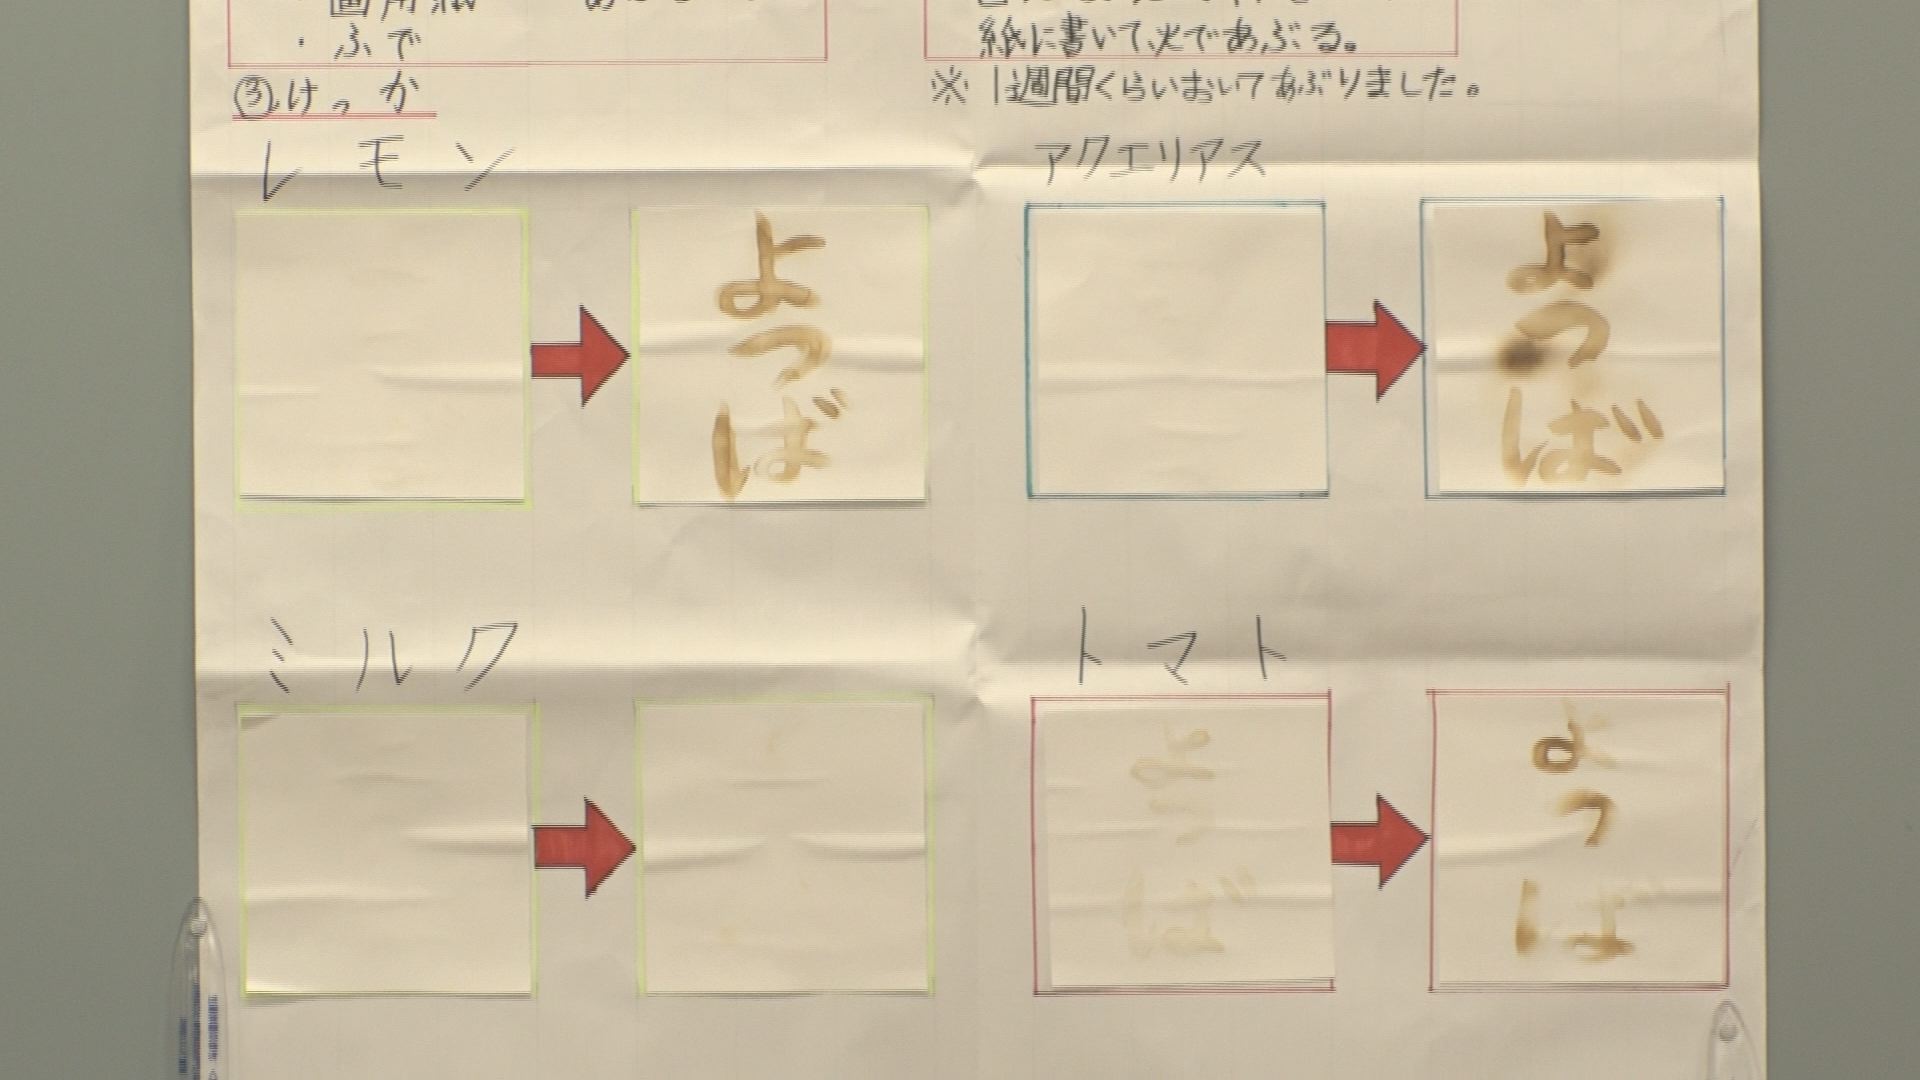 ・画用紙
・ふで
紙に書いて火であぶる。
③けっか
※1週間くらいおいてあぶりました。
レモン
アクエリアス
よつば
よつば
ミルク
トマト
よつば
よつば